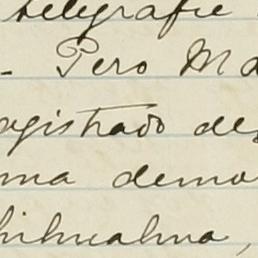 telegrafie
- Pero Ma
agistrado de
ma demo
hihuahua,